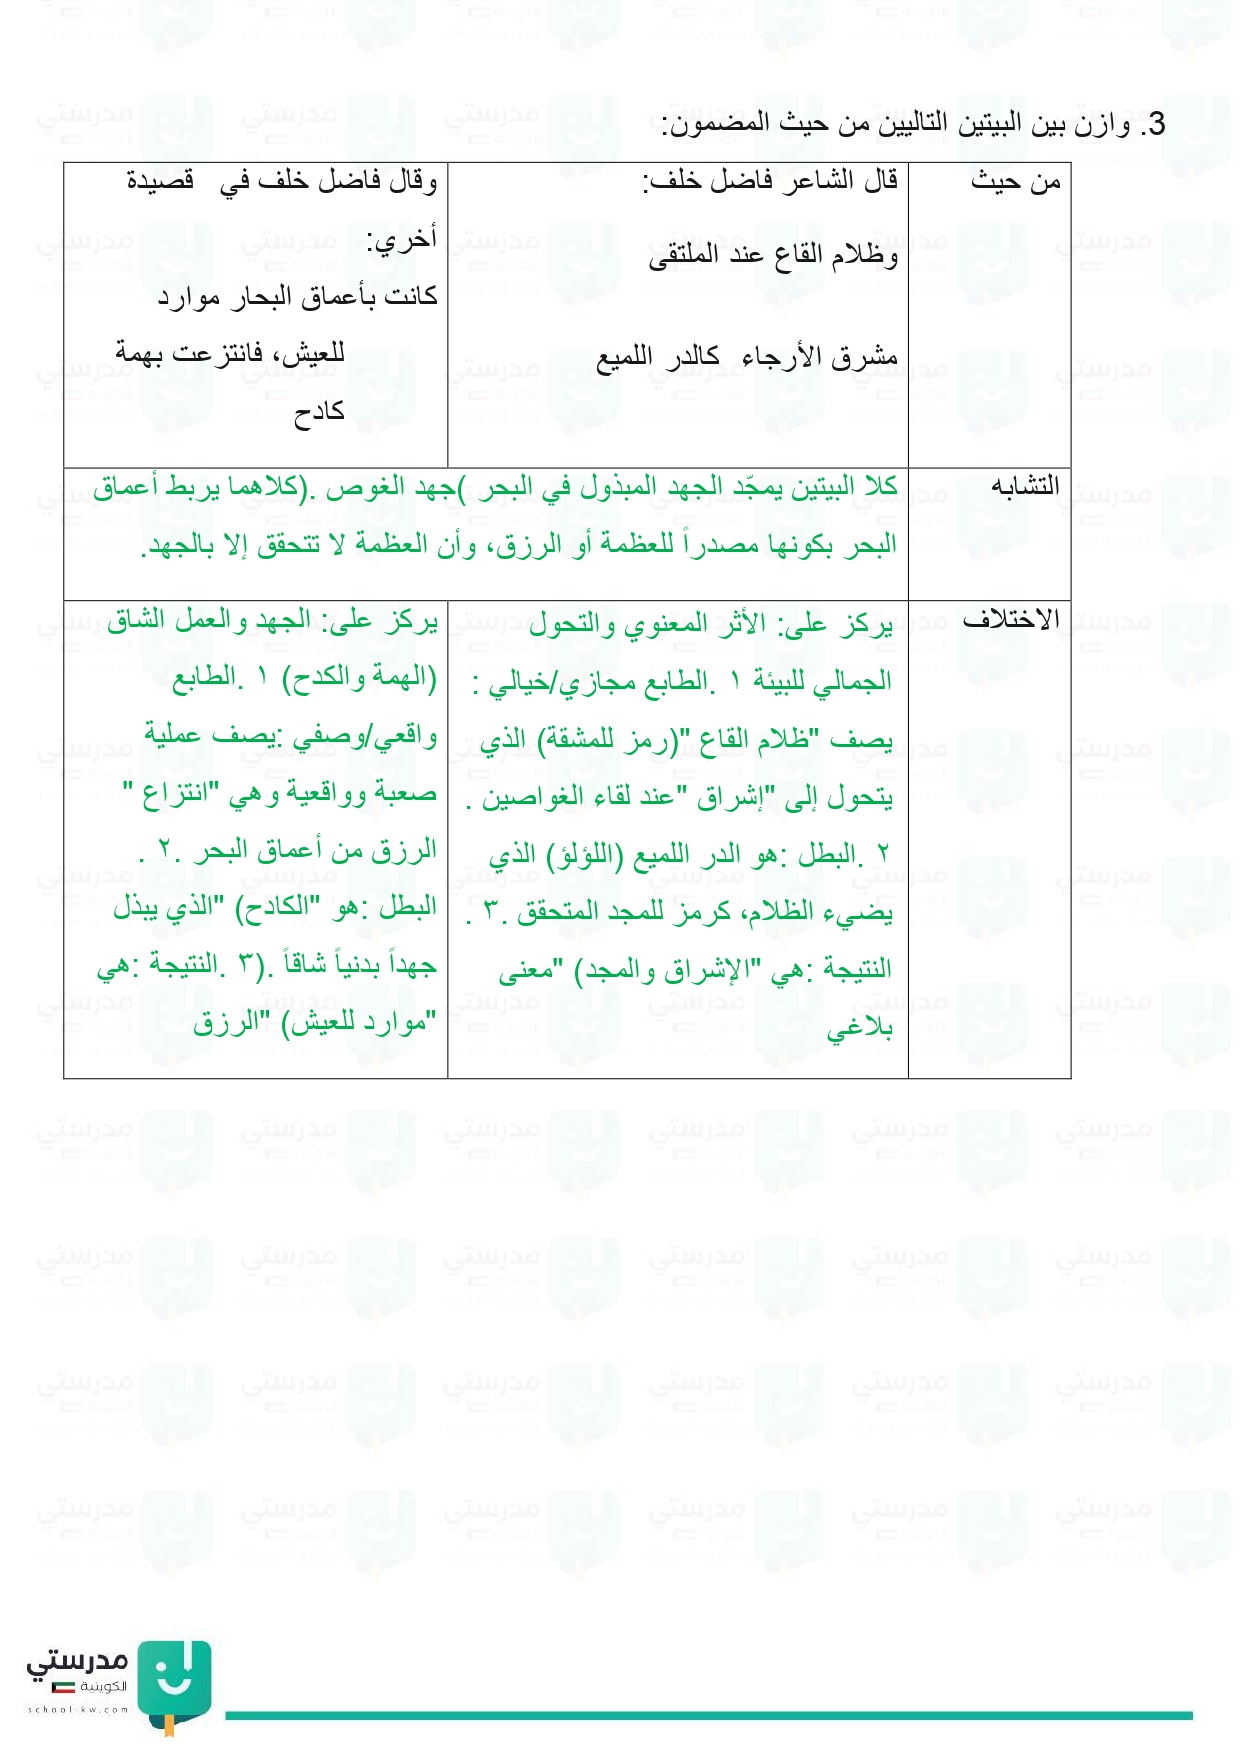 3. وازن بين البيتين التاليين من حيث المضمون:
من حيث
قال الشاعر فاضل خلف:
وظلام القاع عند الملتقى
مشرق الأرجاء كالدر اللميع
وقال فاضل خلف في قصيدة
أخري:
كانت بأعماق البحار موارد
للعيش، فانتزعت بهمة
كادح
التشابه
كلا البيتين يمجّد الجهد المبذول في البحر )جهد الغوص .(كلاهما يربط أعماق
البحر بكونها مصدراً للعظمة أو الرزق، وأن العظمة لا تتحقق إلا بالجهد.
الاختلاف
يركز على: الأثر المعنوي والتحول
الجمالي للبيئة ١ .الطابع مجازي/خيالي :
يصف "ظلام القاع "(رمز للمشقة) الذي
يتحول إلى "إشراق "عند لقاء الغواصين .
٢ .البطل :هو الدر اللميع (اللؤلؤ) الذي
يضيء الظلام، كرمز للمجد المتحقق .٣ .
النتيجة :هي "الإشراق والمجد) "معنى
بلاغي
يركز على: الجهد والعمل الشاق
(الهمة والكدح) ١ .الطابع
واقعي/وصفي :يصف عملية
صعبة وواقعية وهي "انتزاع "
الرزق من أعماق البحر .٢ .
البطل :هو "الكادح) "الذي يبذل
جهداً بدنياً شاقاً .(٣ .النتيجة :هي
"موارد للعيش) "الرزق
مدرستي
الكويتية
school-kw.com